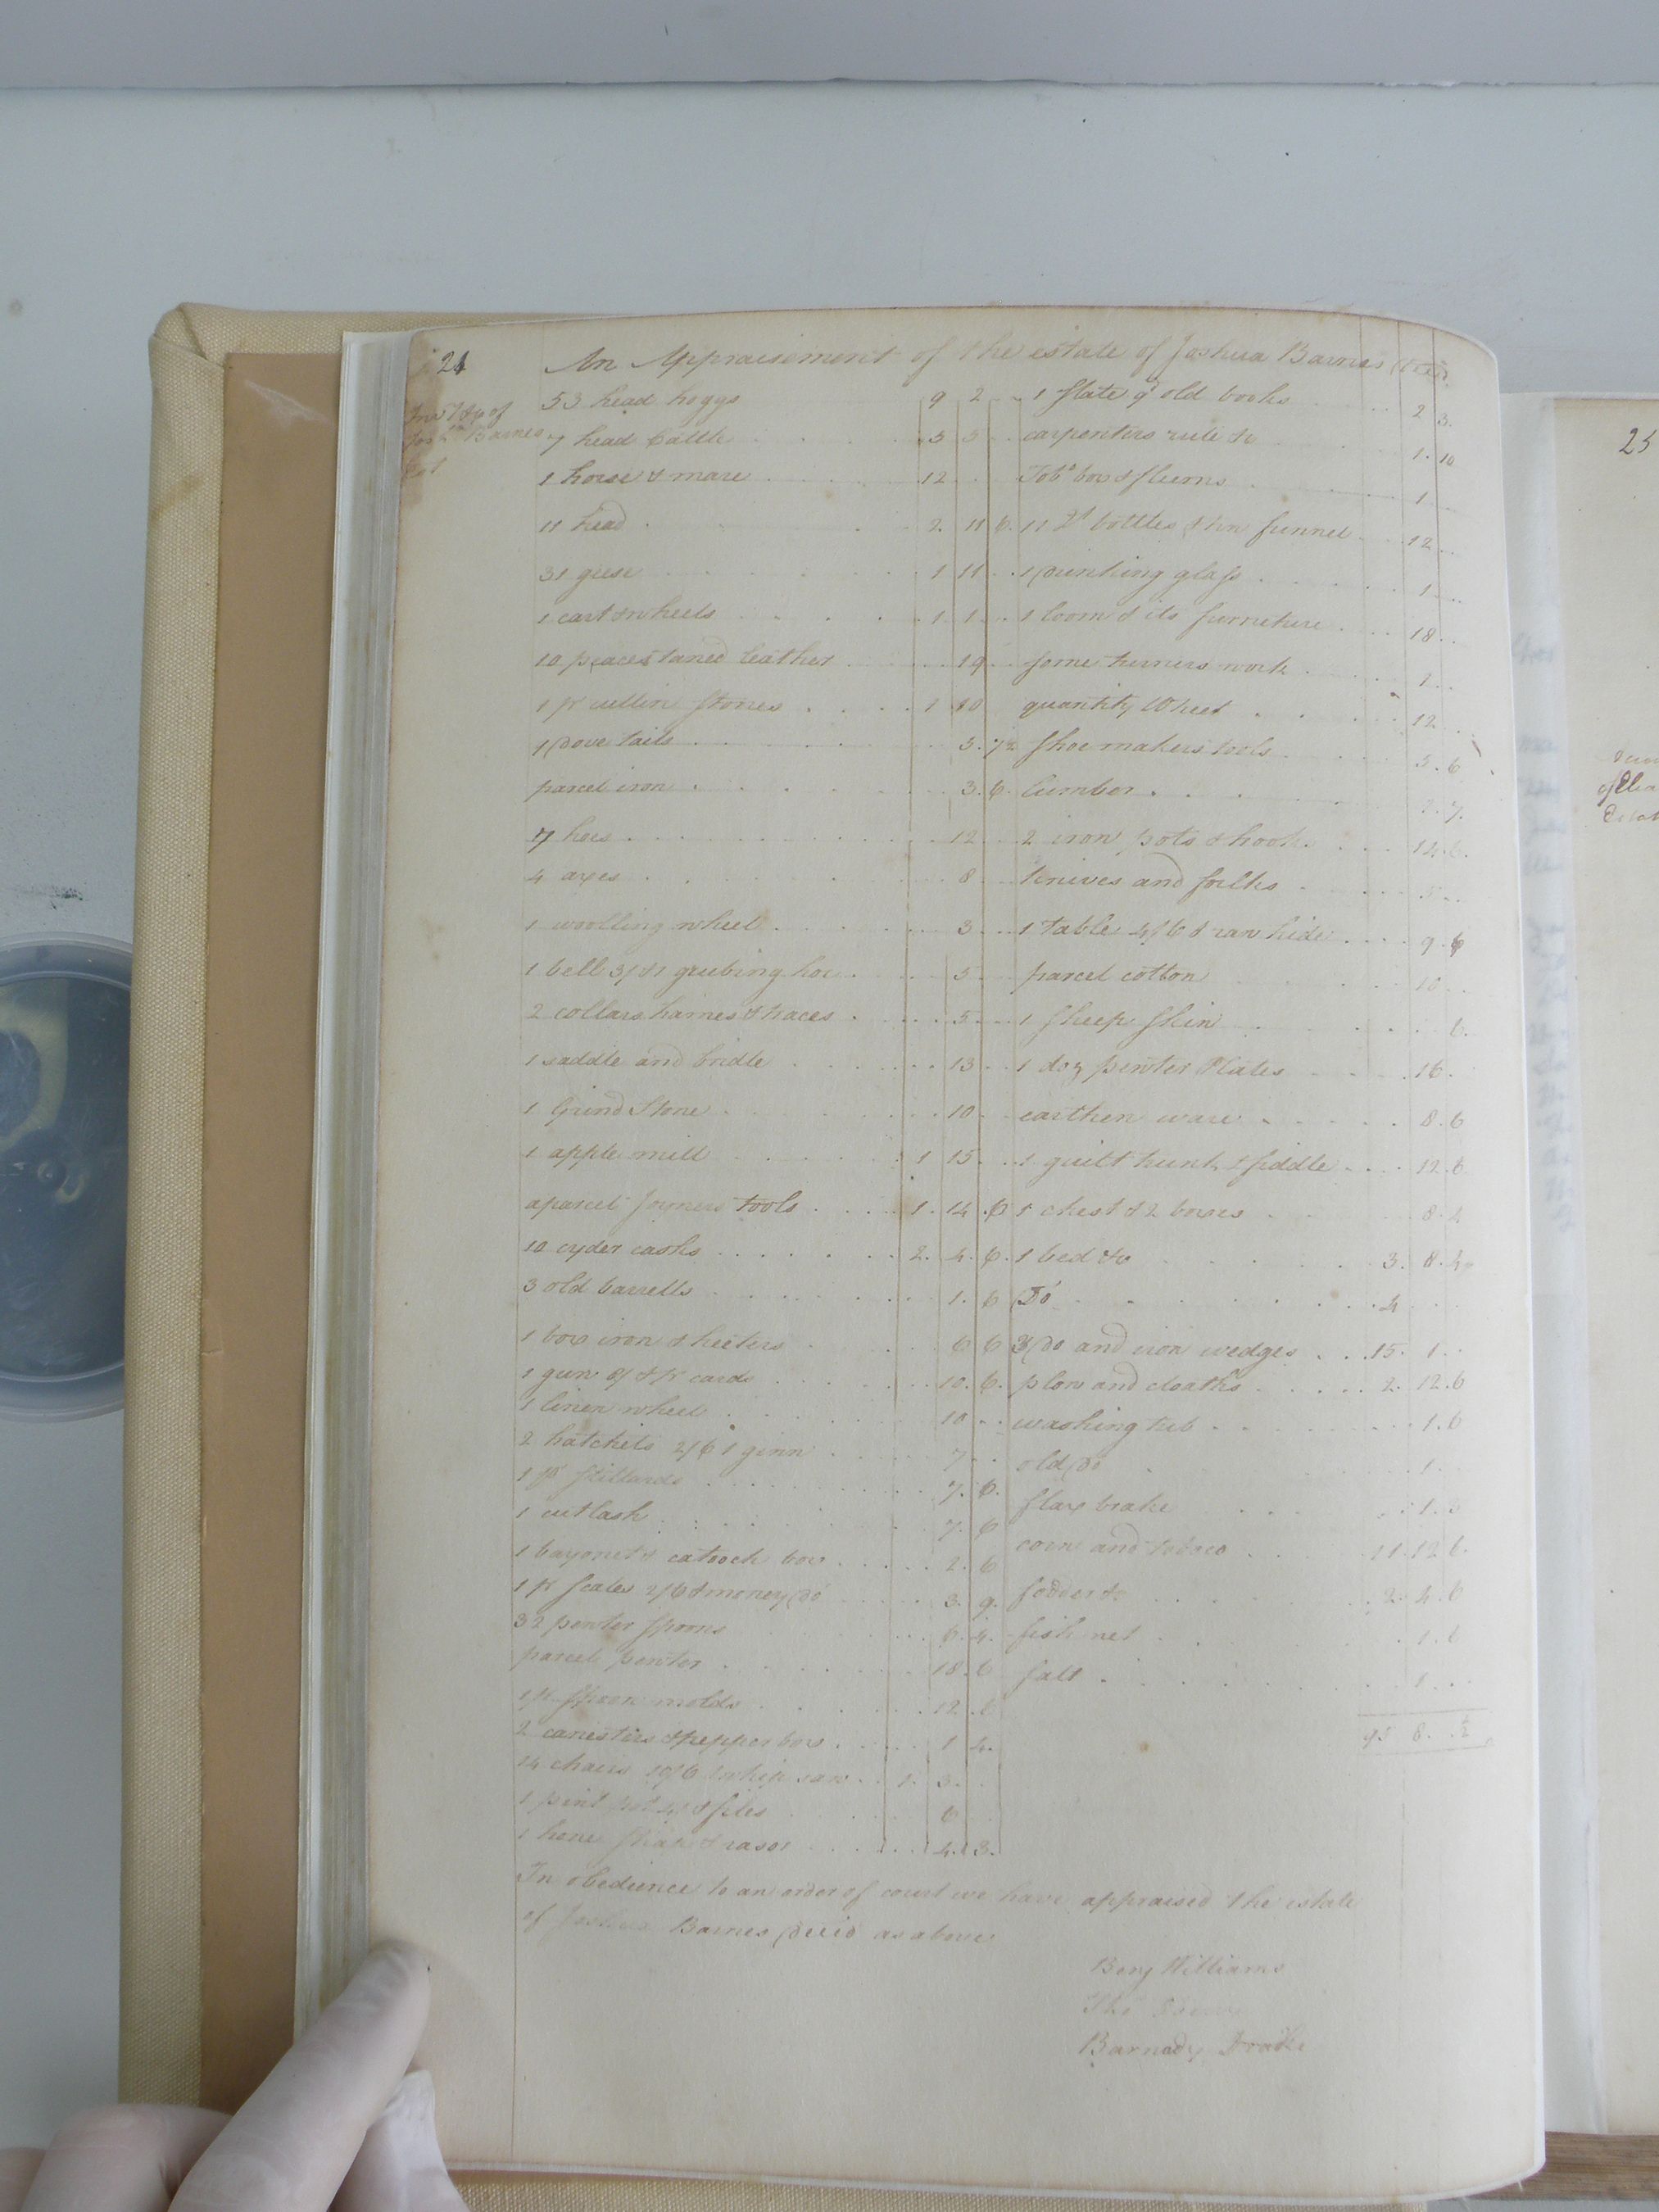 24
An Appraisement of the estate of Joshua Barnes Decd.
Invt & Ap of
Josha Barnes
Est
53 head hoggs 9 2
7 head Cattle 5 5
1 horse & mare 12
11 head 2. 11 6.
31 geese 1 11
1 cart & wheels 1 1
10 peaces taned leather 19
1 pr cullin Stones 1 10
1 Dove tails 3. 7½
parcel iron 3. 6.
7 hoes 12
4 axes 8
1 woolling wheel 3
1 bell 3/ & 1 grubing hoe 5
2 collars hames & traces 5
1 saddle and bridle 13
1 Grind Stone 10
1 apple mill 1 15
a parcel Joyners tools 1. 14. 6
10 cyder casks 2. 4. 6.
3 old barrells 1. 6
1 box iron & heeters 6 6
1 gun 8/ & pr cards 10. 6.
1 linen wheel 10
2 hatchels 2/6 1 ginn 7
1 pr stillards 7. 6.
1 cutlash 7. 6
1 bayonet & catooch box 2. 6
1 pr Scales 2/6 & money Do 3. 9.
32 pewter spoons 6. 4.
parcel pewter 18. 6
1 pr spoon molds 12. 6
2 canesters & pepper box 1 4.
14 chairs 10/6 1 whip saw 1. 3.
1 pint pot & files 6
1 hone strap & rasor 4. 3.
1 slate qd old books 2 3.
carpenters rule &c 1. 10
Tobo box & fleems 1
11 qt bottles & tin funnel 12
1 Drinking glass 1
1 loom & its furneture 18
some turners work 1
quantity Wheet 12
Shoe makers tools 5. 6
lumber 7.
2 iron pots & hooks 14. 6.
knives and forks 5
1 table 4/6 & raw hide 9. 6
parcel cotton 10
1 Sheep Skin 6.
1 doz pewter Plates 16.
earthen ware 8. 6
1 guilt trunk & fiddle 12. 6
1 chest & 2 boxes 8. 4
1 bed &c 3. 8. 4
Do 4
3 Do and iron wedges 15. 1
plow and cloaths 2. 12. 6
washing tub 1. 6
old Do 1
flax brake 1
corn and tobaco 11. 12 6.
fodder &c 2. 4. 6
fish net 1. 6
salt 1
95 8. ½
In obedience to an order of court we have appraised the estate
of Joshua Barnes Decd as above
Benj Williams
Tho
Barnaby Drake
25